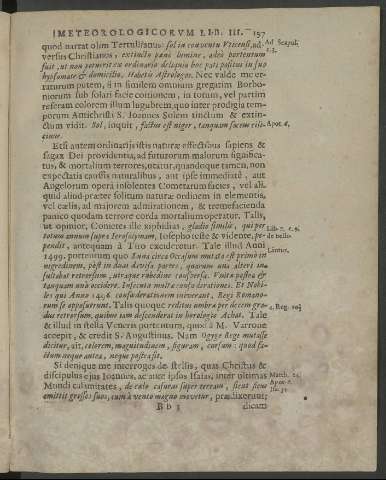 METEOROLOGICORVM LIB. III. 197
quod narrat olim Tertullianus: sol in conventu Vticensi, ad- Ad Scapul.
versus Christianos, extincto pane lumine, adeo portentum c.3.
fuit, ut non potuerit ex ordinario deliquio hoc pati positus in suo
hypsomate & domicilio. Habetis Astrologos. Nec valde me er-
raturum putem, si in similem omnium gregatim Borbo-
niorum sub solari facie coitionem, in totum, vel partim
referam colorem illum lugubrem, quo inter prodigia tem-
porum Antichristi S. Ioannes Solem tinctum & extin-
ctum vidit. Sol, inquit, factus est niger, tanquam saccus cili- Apoc. 6.
cinus.
Etsi autem ordinarij istis naturæ effectibus sapiens &
sagax Dei providentia, ad futurorum malorum significa-
tus, & mortalium terrores, utatur, quandoque tamen, non
expectatis caussis naturalibus, aut ipse immediatè, aut
Angelorum opera insolentes Cometarum facies, vel ali-
quid aliud præter solitum naturæ ordinem in elementis,
vel cælis, ad majorem admirationem, & tremefacienda
panico quodam terrore corda mortalium operatur. Talis,
ut opinior, Cometes ille xiphidias, gladio similis, qui per
totum annum supra Ierosolymam, Iosepho teste & vidente, pe- Lib. 7. c. 9. de bello.
pendit, antequam à Tito excideretur. Tale illud Anni
1499. portentum quo Luna circa Occasum mutata est primò in
nigredinem, pòst in duas divisa partes, quarum una alteri in-
sultabat retrorsum, utraque rubedine conspersa. Visa postea &
tanquam unà occidere. Insecuta multa confœderationes. Et Nobi-
les qui Anno 1446. confœderationem inierant, Regi Romano-
rum se opposuerunt. Talis quoque reditus umbræ per decem gra- 4. Reg. 20.
dus retrorsum, quibus iam descenderat in horologio Achaz. Tale
& illud in stella Veneris portentum, quod à M. Varrone
accepit, & credit S. Augustinus. Nam Ogyge Rege mutasse
dicitur, ait, colorem, magnitudinem, figuram, cursum: quod fa-
ctum neque antea, neque post sit.
Si denique me interroges de stellis, quas Christus &
discipulus ejus Ioannes, ac ante ipsos Isaias, inter ultimas Matth. 24.
Mundi calamitates, de cœlo casuras super terram, sicut ficus Apoc. 6.
emittit grossos suos, cum à vento magno movetur, prædixerunt;
B b 3 dicam